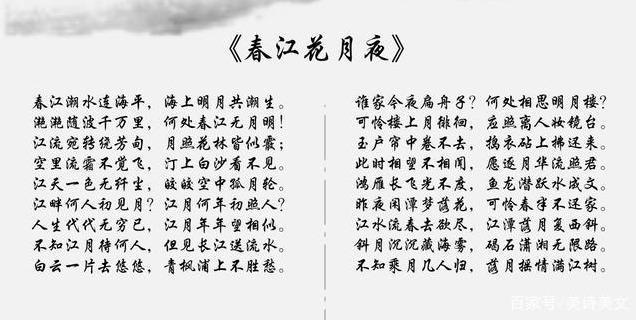 《春江花月夜》
春江潮水连海平，海上明月共潮生。
滟滟随波千万里，何处春江无月明！
江流宛转绕芳甸，月照花林皆似霰；
空里流霜不觉飞，汀上白沙看不见。
江天一色无纤尘，皎皎空中孤月轮。
江畔何人初见月？江月何年初照人？
人生代代无穷已，江月年年望相似。
不知江月待何人，但见长江送流水。
白云一片去悠悠，青枫浦上不胜愁。
谁家今夜扁舟子？何处相思明月楼？
可怜楼上月徘徊，应照离人妆镜台。
玉户帘中卷不去，捣衣砧上拂还来。
此时相望不相闻，愿逐月华流照君。
鸿雁长飞光不度，鱼龙潜跃水成文。
昨夜闲潭梦落花，可怜春半不还家。
江水流春去欲尽，江潭落月复西斜。
斜月沉沉藏海雾，碣石潇湘无限路。
不知乘月几人归，落月摇情满江树。
百家号/美诗美文